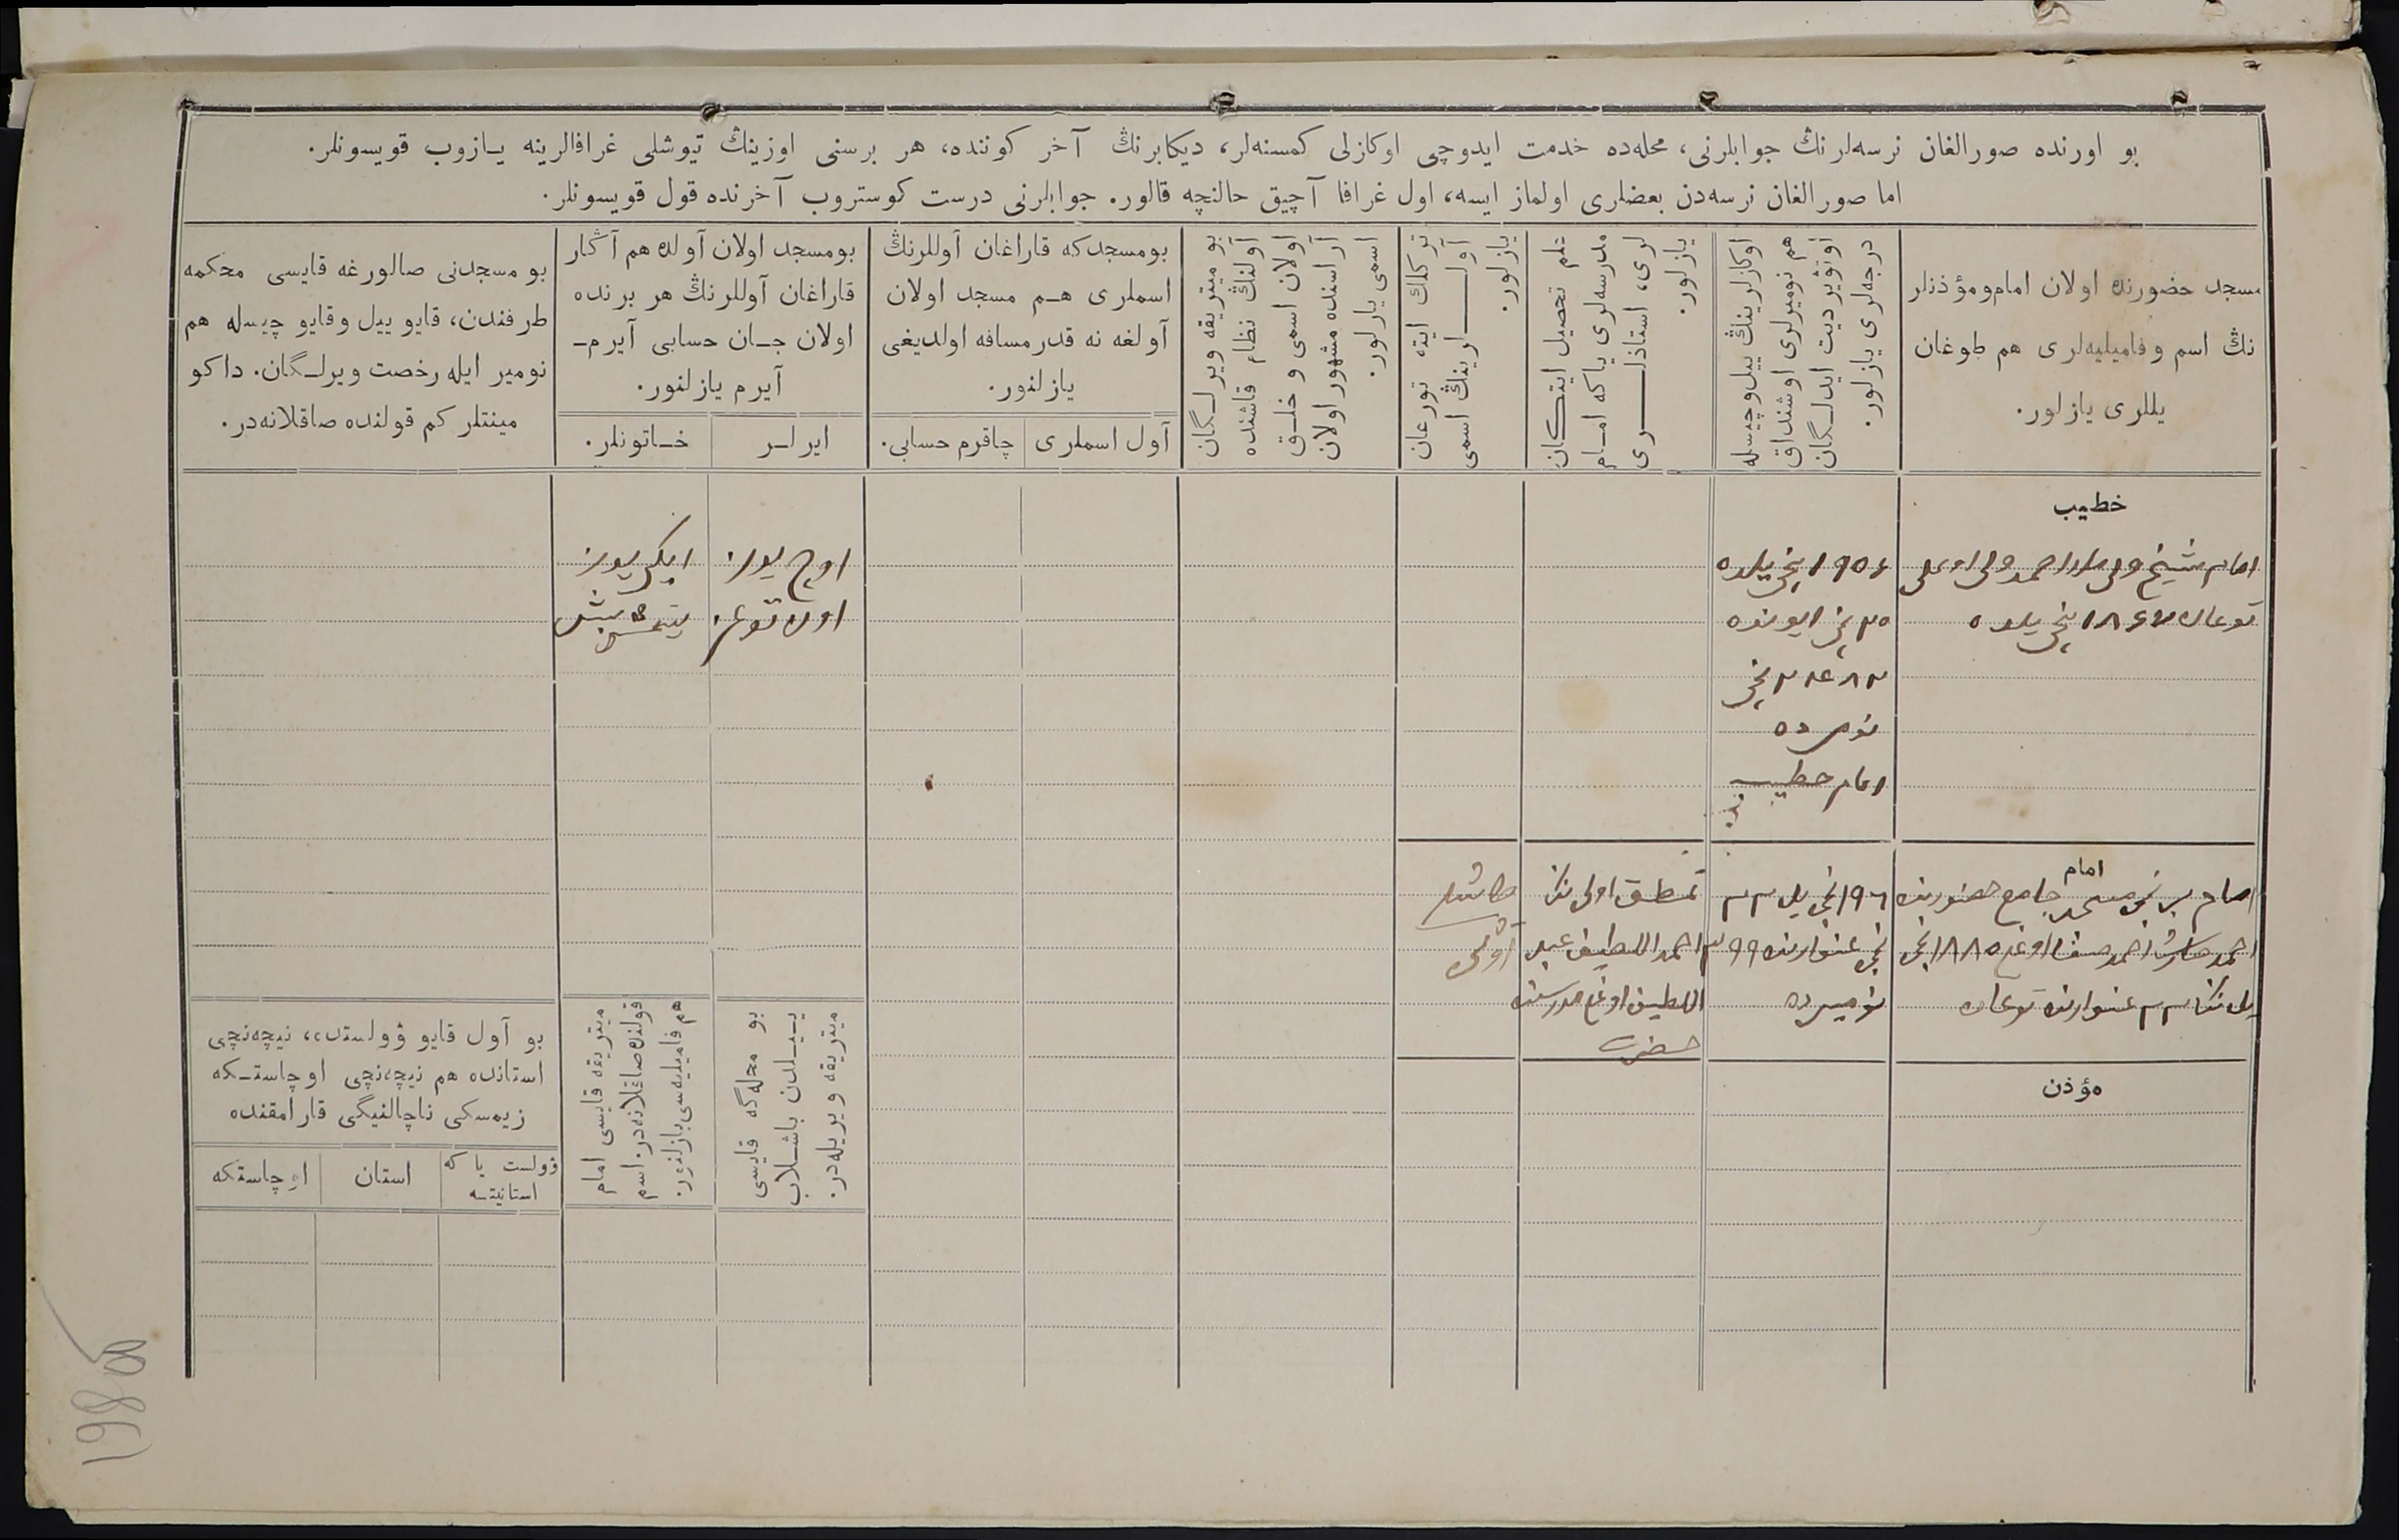 بو اورنده صورالغان نرسه‌لرنڭ جوابلرنی، محله‌ده خدمت ایدوچی اوكازلی كمسنه‌لر، دیكابرنڭ آخر كوننده، هر برسنی اوزینڭ تیوشلی غرافالرینه یازوب قویسونلر.
اما صورالغان نرسه‌دن بعضلری اولماز ایسه، اول غرافا آچیق حالنچه قالور. جوابلرنی درست كوستروب آخرنده قول قویسونلر.
مسجد حضورنده اولان امام‌ و مؤذنلر
نڭ اسم و فامیلیه‌لری هم طوغان
یللری یازلور.
اوكازلرینڭ ییل و چیسله
هم نومیرلری اوشنداق
اوتویردیت ایدلـگان
درجه‌لری یازلور.
علم تحصیل ایتـكان
مدرسه‌لری یا كه امام
لری، استاذلــری
یازلور.
تركلك ایته تورغان
آولــلرینڭ اسمی
یازلور.
بو میتریقه ویرلـگان
آولنڭ نظام قاشنده
اولان اسمی و خلـق
آراسنده مشهور اولان
اسمی یازلور.
بومسجدكه قاراغان آوللرنڭ
اسملری هـم مسجد اولان
آولغه نه قدر مسافه اولدیغی
یازلنور.
آول اسملری
چاقرم حسابی.
بومسجد اولان آولده هم آڭار
قاراغان آوللرنڭ هر برنده
اولان جـان حسابی آیرم-
آیرم یازلنور.
ایرلـر
خـاتونلر.
بو مسجدنی صالورغه قایسی محكمه
طرفندن، قایو ییل و قایو چیسله هم
نومیر ایله رخصت ویرلـگان. داكو
مینتلر كم قولنده صاقلانه‌در.
خطیب
امام شیخ ولی ملا احمد ولی اوغلی
توغان ۱۸۶۷ نچی یلده
۱۹۰۶ نچی یلده
۲۰ نچی ایونده
۲۴۸۲ نچی
نومرده
امام خطیب
اوچ یوز
اون توغز
ایكی یوز
یتمش بیش
امام
امام برنچی مسجد جامع حضورینه
احمد احمد صفا اوغلی ۱۸۸۵ نچی
یل نڭ ۲۲ غنوارنده توغان
۱۹۱۶ نچی یل ۲۲
نچی غنوارنده ۳۹۹
نومیرده
اولی نڭ
احمد اللطیف عبد
اللطیف اوغلی مدرسه‌سنده
حضرت
مؤذن
بو محله‌گه قایسی
ییـلدن باشـلاب
میتریقه ویریله‌در.
میتریقه قایسی امام
قولنده صاقلانه‌در. اسم
هم فامیلیه‌سی یازلنور.
بو آول قایو ۋولستده، نیچه‌نچی
استانده هم نیچه‌نچی اوچاستـكه
زیمسكی ناچالنیگی قارامقنده
ۋولست یا كه
استانیتسه
استان
اوچاستكه
198об